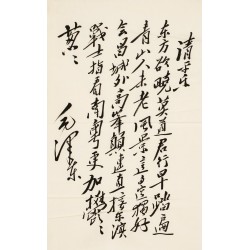 清平乐
东方欲晓莫道君行早踏遍
青山人未老风景这边独好
会昌城外高峰颠连直接东溟
战士指看南粤更加郁郁
葱葱
毛泽东